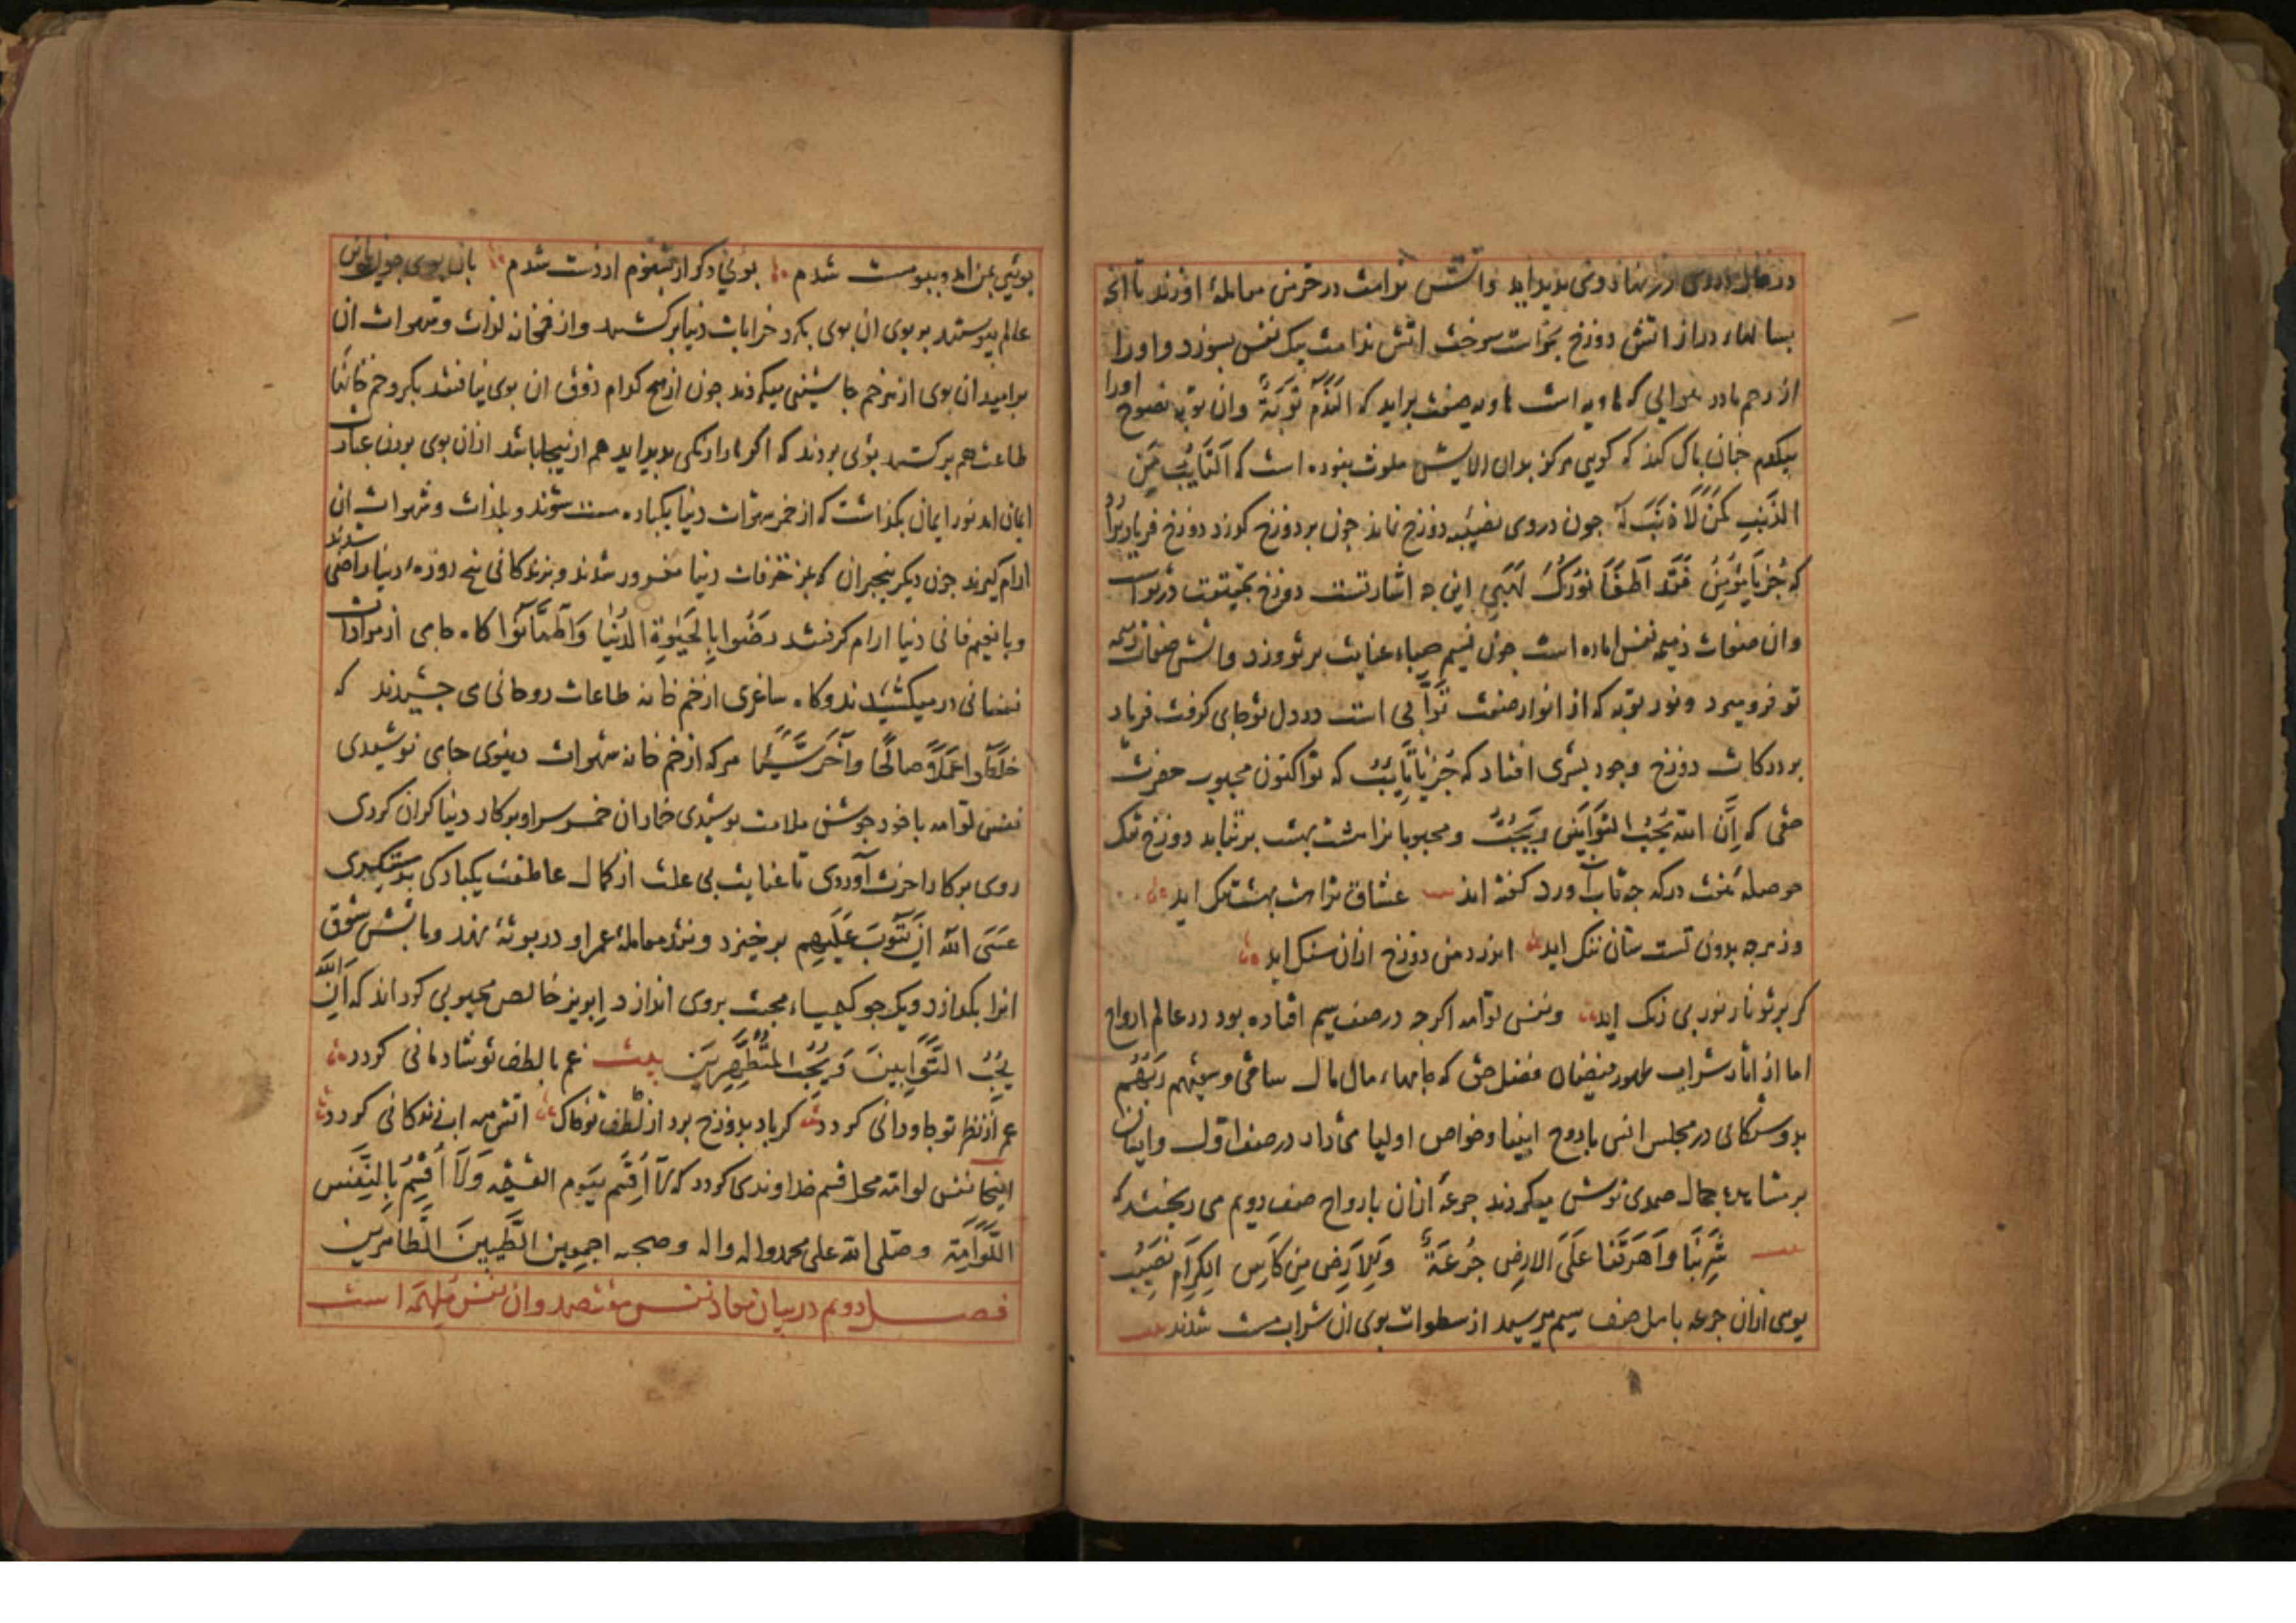 در نهاد وی پدید اید و اتش ندامت در خرمن معاملهٔ او زند تا انچ
بسالهاء دراز اتش دوزخ نخواست سوخت اتش ندامت بیک نفس بسوزد و او را
از رحم مادر هوایی که هاویه است هاویه صفت براید که اَلنَّدَمُ تَوبَةٌ وان توبه نصوح او را
بیکدم چنان پاک کند که کویی هرکز بدان الایش ملوث نبوده است که اَلتَّایِبُ مِنَ
الذَّنبِ کَمَن لَا ذَنبَ لَه چون در وی نصیبه دوزخ نماند چون بر دوزخ کذرد دوزخ فریاد برارد
که جُز یَا مُؤمِنُ فَقَد اَطفَاَ نُورُکَ لَهَبِی این چه اشارتست دوزخ بحقیقت در تو است
وان صفات ذمیمه نفس اماره است چون نسیم صباء عنایت بر تو وزد واتش صفات ذمیمه
تو فرو میرد و نور توبه که از انوار صفت توّابی است در دل تو جای کرفت فریاد
بر درکات دوزخ وجود بشری افتاد که جُز یَا تَایِبُ که تو اکنون محبوب حضرت
حقی که اِنَّ اللهَ یُحِبُّ التَّوَّابِینَ وَیُحِبُّ و محبوبانرا هشت بهشت بر نتابد دوزخ تنک
حوصلهٔ هفت درکه چه تاب آورد کفته اند عشاق ترا هشت بهشت تنک اید
وز هرچه بدون تست شان ننک اید اندر دهن دوزخ ازان سنک اید
کز پرتو نار نور بی رنک اید ونفس لوّامه اکرچه در صف سیم افتاده بود در عالم ارواح
اما از اثار شراب طهور فیضان فضل حق که جامهاء مال مال ساقی وَسَقیهُم رَبُّهُم
بدوستکانی در مجلس انس بارواح انبیا وخواص اولیا می داد در صف اوّل وایشان
بر مشاهدهٔ جمال صمدی نوش میکردند جرعهٔ ازان بارواح صف دویم می ریختند که
شَرِبنَا وَاَهرَقنَا عَلَی الارضِ جُرعَةً وَلِلاَرضِ مِن کَاسِ الکِرَامِ نَصِیبُ
بویی ازان جرعه باهل صف سیم میرسید از سطوات بوی ان شراب مست شدند
بوئی بمن امد و ببو مست شدم بوئی دکر ار بشنوم از دست شدم بان بوی چون باین
عالم پیوستند بر بوی ان بوی بکرد خرابات دنیا برکشتند واز خمخانه لذات وشهوات ان
برامید ان بوی از هر خم چاشنی میکردند چون از هیچ کدام ذوق ان بوی نیافتند بکرد خم خانها
طاعت هم برکشتند بوئی بردند که اکر مارا رنکی پدید اید هم ازینجا باشد ازان بوی بردن عبارت
ایمان امد نور ایمان نکذاشت که از خمر شهوات دنیا یکباره مست شوند و بلذات وشهوات ان
ارام کیرند چون دیکر بیخبران که بمزخرفات دنیا مغرور شدند وبزندکانی پنج روزهٔ دنیا راضی شدند
وبا نعیم فانی دنیا ارام کرفتند رَضُوا بِالحَیٰوةِ الدُّنیَا وَاطمَاَنُّوا کاه جامی از مرادات
نفسانی در میکشیدند وکاه ساغری از خم خانه طاعات روحانی می چشیدند که
خَلَطُوا عَمَلًا صَالِحًا وَآخَرَ سَیِّئًا هرکه از خم خانه شهوات دنیوی جامی نوشیدی
نفس لوّامه باخود جوشن ملامت پوشیدی خمار ان خمر سر او بر کار دنیا کران کردی
روی بر کار اخرت آوردی تا عنایت بی علت از کمال عاطفت یکبارکی بدستکیری
عَسَی اللهُ اَن یَتُوبَ عَلَیهِم برخیزد ونقد معاملهٔ عمر او در بوتهٔ نهد وباتش شوق
انرا بکدازد ویک جو کیمیاء محبت بروی اندازد ابریز خالص محبوبی کرداند که اِنَّ اللهَ
یُحِبُّ التَّوَّابِینَ وَیُحِبُّ المُتَطَهِّرِینَ بیت غم با لطف تو شادمانی کردد
عمر از نظر تو جاودانی کردد کر باد بدوزخ برد از لطف تو خاک اتش همه اب زندکانی کردد
اینجا نفس لوّامه محل قسم خداوندی کردد که لَا اُقسِمُ بِیَومِ القیٰمَه وَلَا اُقسِمُ بِالنَّفسِ
اللَّوَّامَة وصلی الله علی محمد واله وصحبه اجمعین الطَّیِّبِینَ الطَّاهِرِینَ
فصل دویم در بیان معاد نفس مقتصد وان نفس مُلهَمَه است